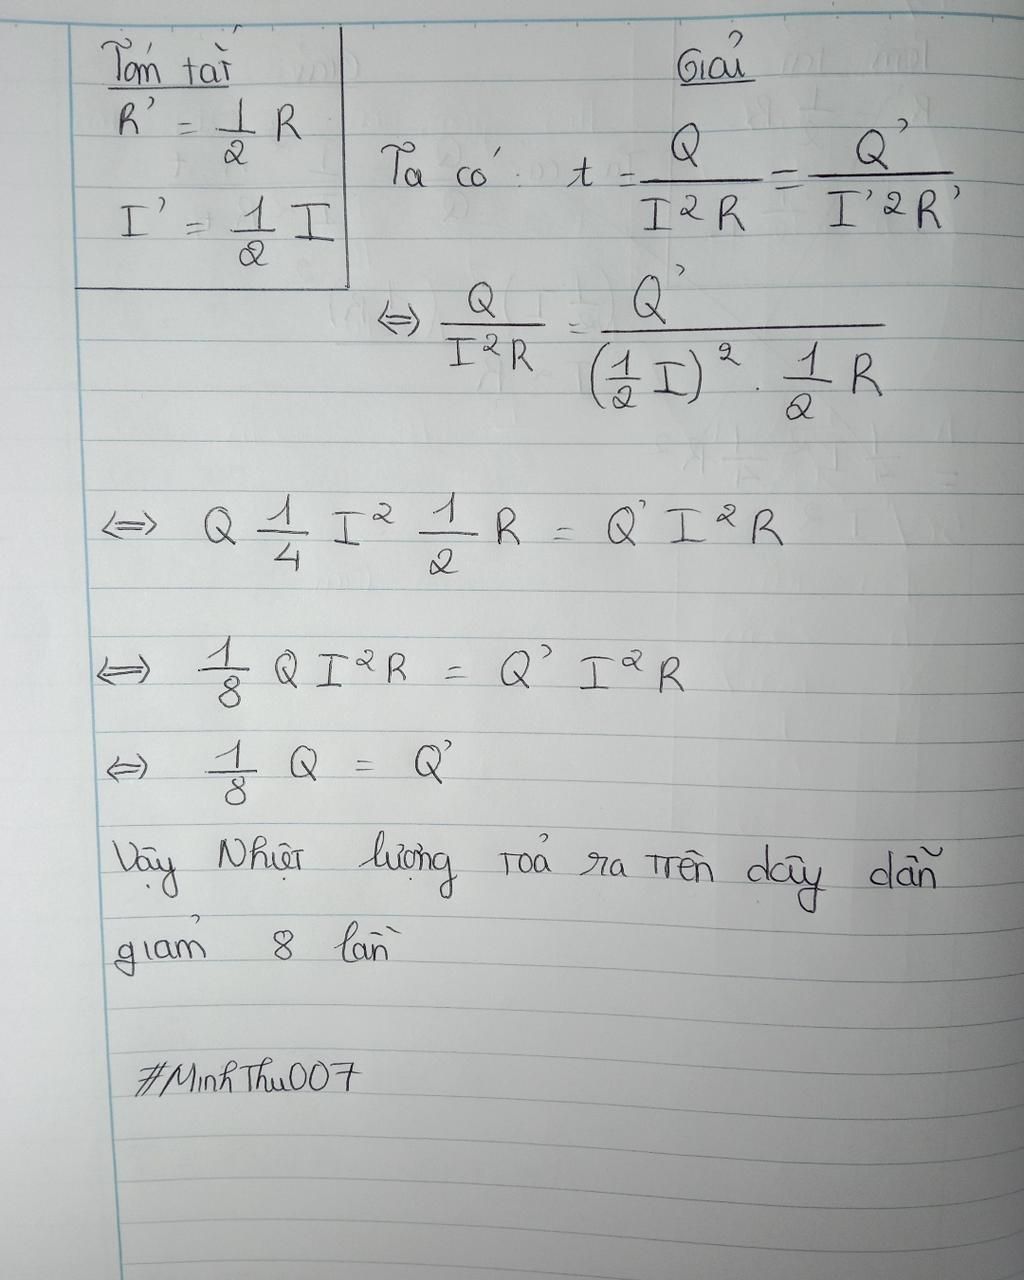 Tóm tắt
R' = 1/2 R
I' = 1/2 I
Giải
Ta có: t = Q/I²R = Q'/I'²R'
⇔ Q/I²R = Q'/(1/2 I)² . 1/2 R
⇔ Q 1/4 I² 1/2 R = Q' I² R
⇔ 1/8 Q I² R = Q' I² R
⇔ 1/8 Q = Q'
Vậy Nhiệt lượng toả ra trên dây dẫn
giảm 8 lần
#MinhThu007